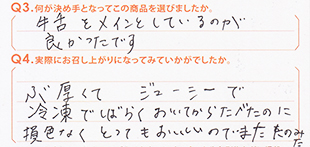 Q3.何が決め手となってこの商品を選びましたか。
牛舌をメインとしているのが
良かったです
Q4.実際にお召し上がりになってみていかがでしたか。
ぶ厚くて ジューシーで
冷凍でしばらくおいてからたべたのに
損色なくとってもおいしいのでまたたのみた